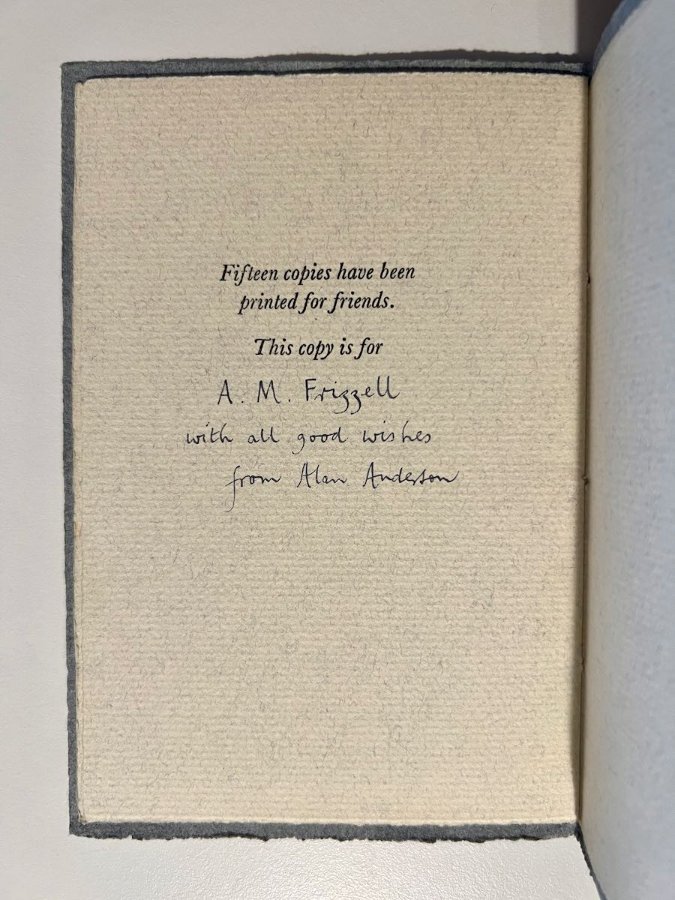 Fifteen copies have been
printed for friends.
This copy is for
A. M. Frizzell
with all good wishes
from Alan Anderson